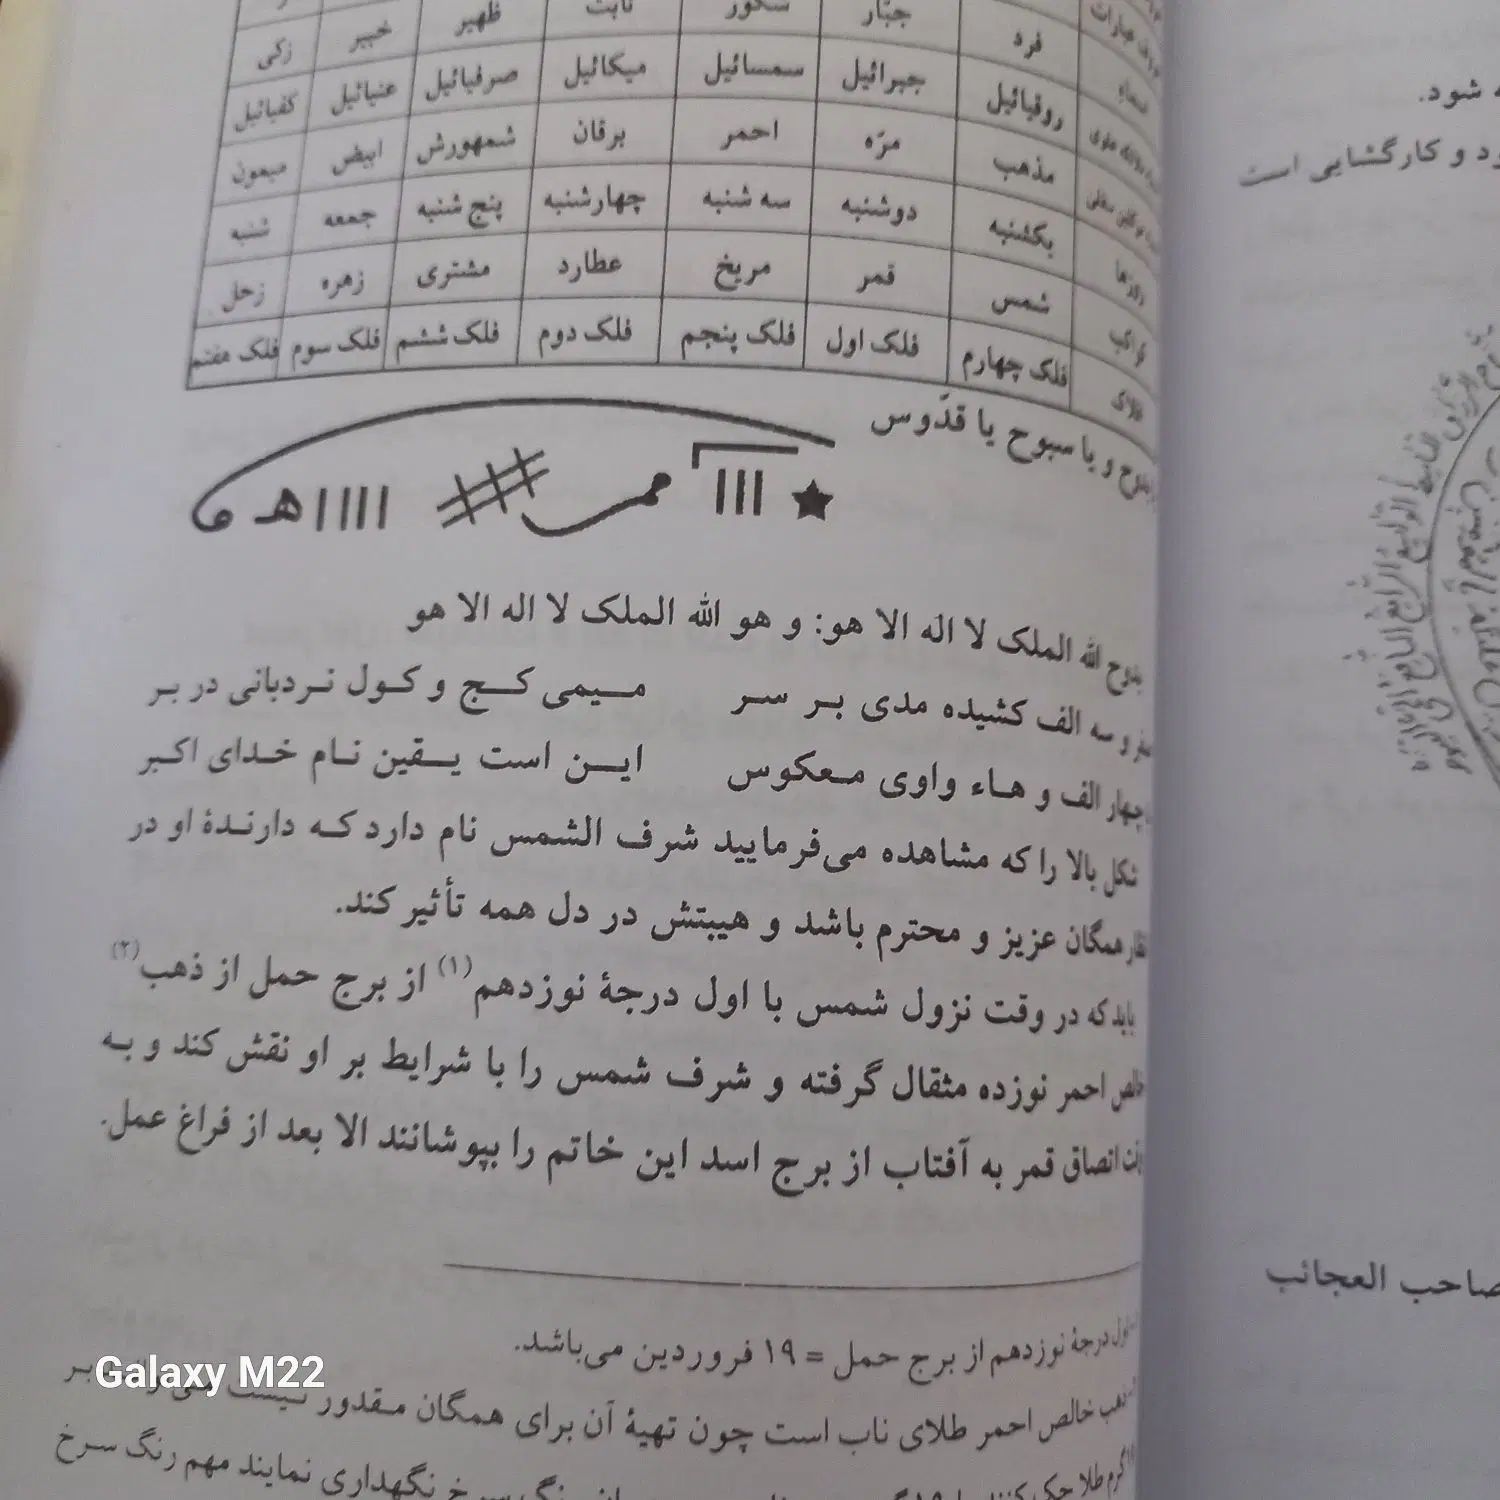 فرد جبّار شکور ثابت ظهیر خبیر زکی
روقیائیل جبرائیل سمسائیل میکائیل صرفیائیل عنیائیل کفیائیل
مذهب مرّه احمر برقان شمهورش ابیض میمون
یکشنبه دوشنبه سه شنبه چهارشنبه پنج شنبه جمعه شنبه
کواکب شمس قمر مریخ عطارد مشتری زهره زحل
فلک چهارم فلک اول فلک پنجم فلک دوم فلک ششم فلک سوم فلک هفتم
و یا سبوح یا قدّوس
الله الملک لا اله الا هو: و هو الله الملک لا اله الا هو
و سه الف کشیده مدی بر سر میمی کج و کول نردبانی در بر
چهار الف و هاء واوی معکوس این است یقین نام خدای اکبر
شکل بالا را که مشاهده می‌فرمایید شرف الشمس نام دارد که دارندهٔ او در
همگان عزیز و محترم باشد و هیبتش در دل همه تأثیر کند.
باید که در وقت نزول شمس با اول درجهٔ نوزدهم(۱) از برج حمل از ذهب(۲)
خالص احمر نوزده مثقال گرفته و شرف شمس را با شرایط بر او نقش کند و به
اتصاق قمر به آفتاب از برج اسد این خاتم را بپوشانند الا بعد از فراغ عمل.
اول درجهٔ نوزدهم از برج حمل = ۱۹ فروردین می‌باشد.
ذهب خالص احمر طلای ناب است چون تهیهٔ آن برای همگان مقدور نیست بر
گرم طلا حک کنند رنگ سرخ نگهداری نمایند مهم رنگ سرخ
شود.
و کارگشایی است
صاحب العجائب
Galaxy M22